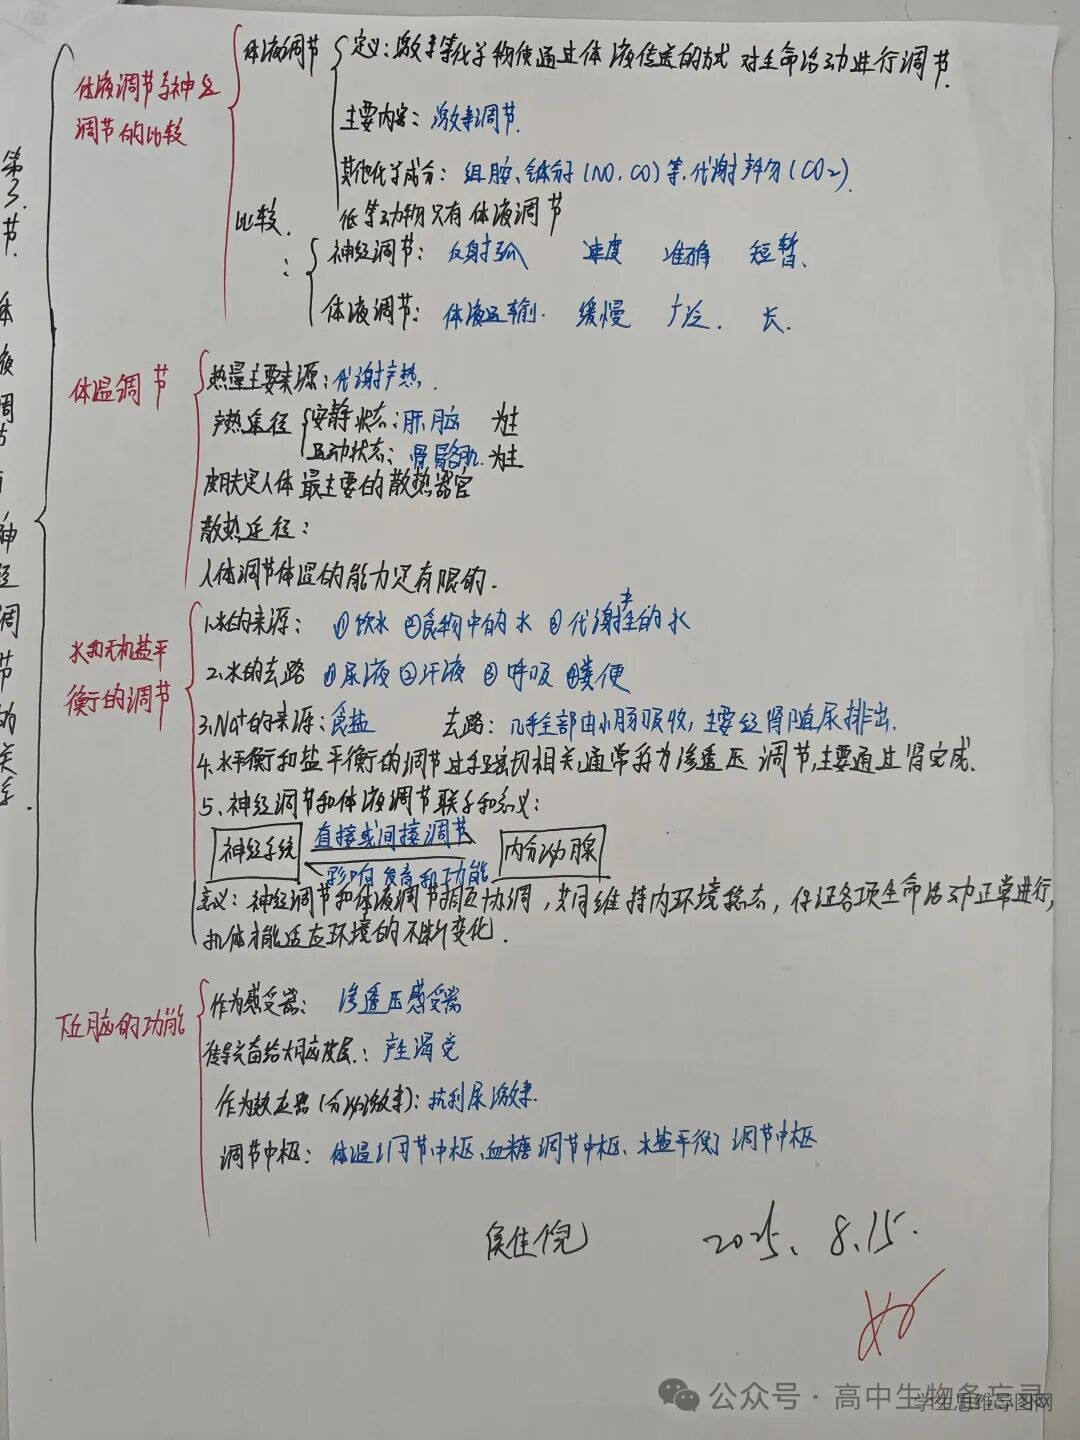 第3节 体液调节与神经调节的关系
体液调节与神经
调节的比较
体液调节
定义:激素等化学物质通过体液传送的方式对生命活动进行调节.
主要内容:激素调节.
其他化学成分:组胺、气体分子(NO,CO)等.代谢产物(CO2).
低等动物只有体液调节
比较.
神经调节:反射弧 速度 准确 短暂、
体液调节:体液运输. 缓慢 广泛. 长.
体温调节
热量主要来源:代谢产热.
产热途径
安静状态:肝、脑 为主
运动状态:骨骼肌.为主
皮肤是人体最主要的散热器官
散热途径:
人体调节体温的能力是有限的.
水和无机盐平
衡的调节
1.水的来源: ①饮水 ②食物中的水 ③代谢产生的水
2.水的去路 ①尿液②汗液 ③呼吸 ④粪便
3.Na+的来源:食盐 去路:几乎全部由小肠吸收,主要经肾随尿排出.
4.水平衡和盐平衡的调节过程密切相关,通常称为渗透压调节,主要通过肾完成.
5.神经调节和体液调节联系和意义:
神经系统 直接或间接调节 内分泌腺
影响发育和功能
意义:神经调节和体液调节相互协调,共同维持内环境稳态,保证各项生命活动正常进行,
机体才能适应环境的不断变化.
下丘脑的功能
作为感受器: 渗透压感受器
传导兴奋给大脑皮层.:产生渴觉
作为效应器(分泌激素):抗利尿激素.
调节中枢: 体温调节中枢、血糖调节中枢、水盐平衡调节中枢
侯佳倪 2025、8、15.
好
公众号·高中生物备忘录
学生思维导图网